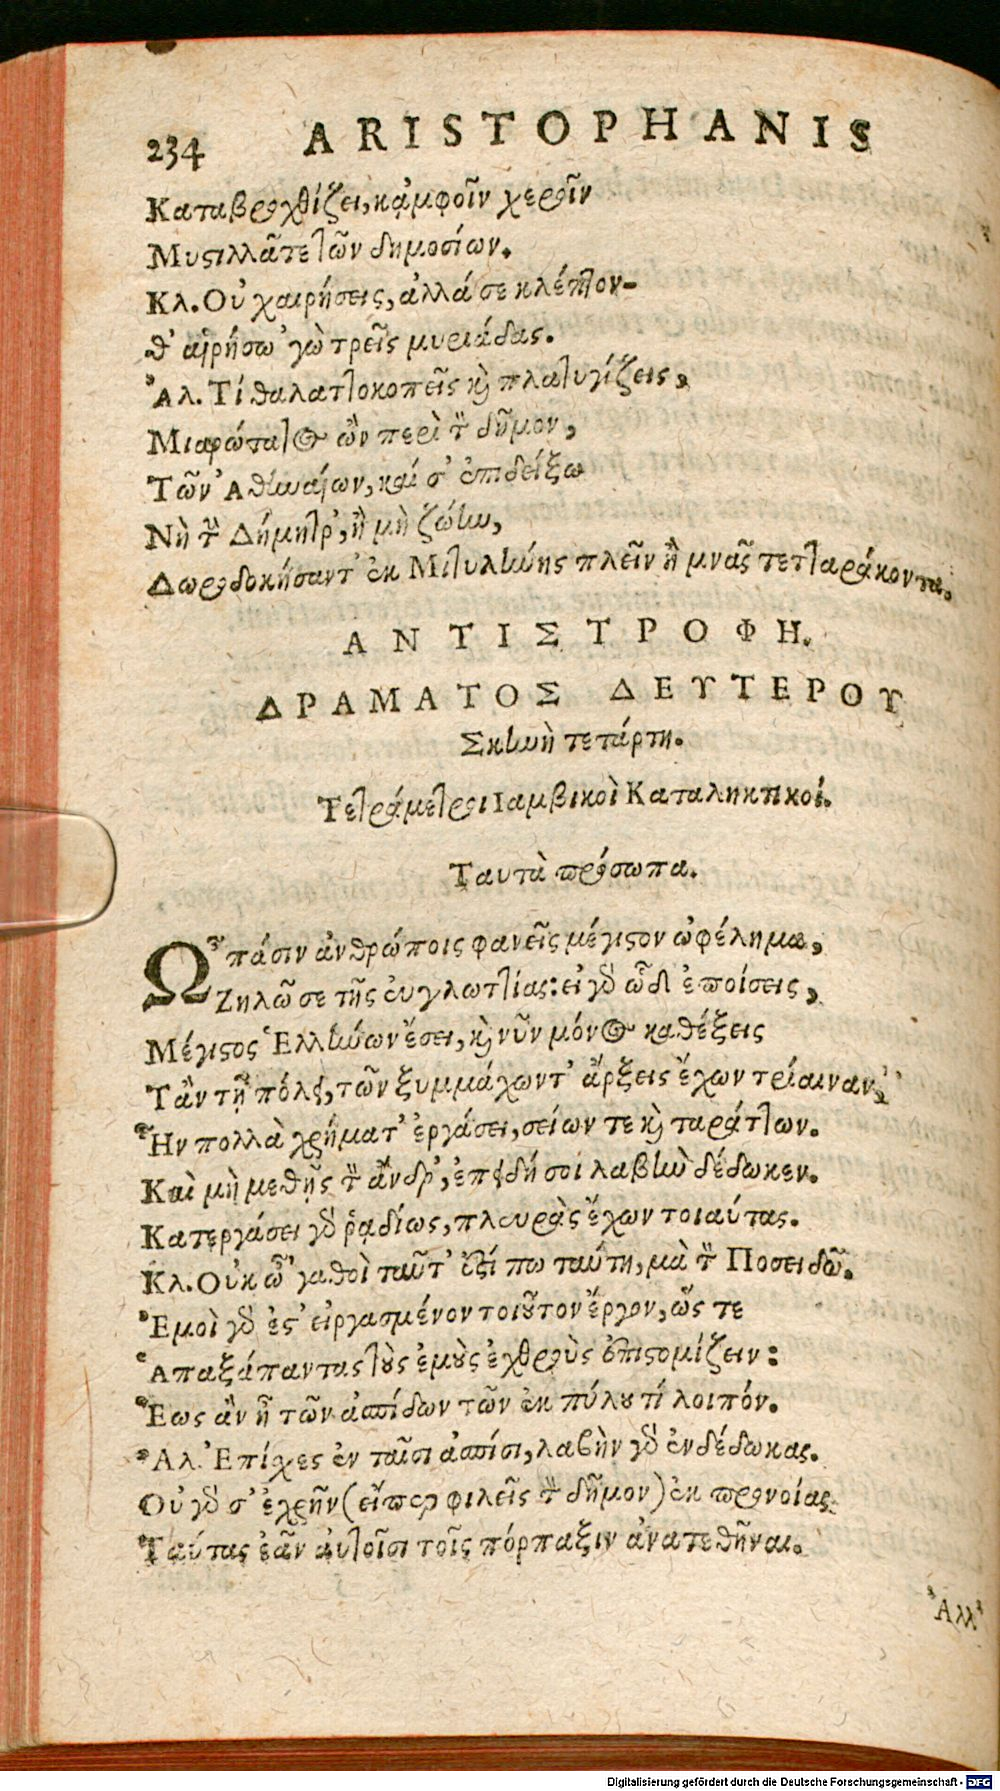 234 ARISTOPHANIS
Καταβροχθίζει, κἀμφοῖν χεροῖν
Μυστιλλᾶτε τῶν δημοσίων.
Κλ. Οὐ χαιρήσεις, ἀλλά σε κλέπτον-
θ' αἱρήσω 'γὼ τρεῖς μυριάδας.
Ἀλ. Τί θαλαττοκοπεῖς καὶ πλατυγίζεις,
Μιαρώτατος ὢν περὶ τὸν δῆμον,
Τῶν Ἀθηναίων, καί σ' ἐπιδείξω
Νὴ τὴν Δήμητρ', ἢ μὴ ζώην,
Δωροδοκήσαντ' ἐκ Μιτυλήνης πλεῖν ἢ μνᾶς τετταράκοντα.
ΑΝΤΙΣΤΡΟΦΗ.
ΔΡΑΜΑΤΟΣ ΔΕΥΤΕΡΟΥ
Σκηνὴ τετάρτη.
Τετράμετροι Ιαμβικοὶ Καταληκτικοί.
Ταυτὰ πρόσωπα.
Ὦ πάσιν ἀνθρώποις φανεῖς μέγιστον ὠφέλημα,
Ζηλῶ σε τῆς εὐγλωττίας: εἰ γὰρ ὧδ' ἐποίσεις,
Μέγιστος Ἑλλήνων ἔσει, καὶ νῦν μόνος καθέξεις
Τἂν τῇ πόλει, τῶν ξυμμάχων τ' ἄρξεις ἔχων τρίαιναν,
Ἣν πολλὰ χρήματ' ἐργάσει, σείων τε καὶ ταράττων.
Καὶ μὴ μεθῇς τὸν ἄνδρ', ἐπειδή σοι λαβὴν δέδωκεν.
Κατεργάσει γὰρ ῥᾳδίως, πλευρὰς ἔχων τοιαύτας.
Κλ. Οὐκ ὦ 'γαθοὶ ταῦτ' ἐστί πω ταύτη, μὰ τὸν Ποσειδῶ.
Ἐμοὶ γὰρ ἐστ' εἰργασμένον τοιοῦτον ἔργον, ὥς τε
Ἁπαξάπαντας τοὺς ἐμοὺς ἐχθροὺς ἐπιστομίζειν:
Ἕως ἂν ᾖ τῶν ἀσπίδων τῶν ἐκ πύλου τί λοιπόν.
Ἀλ. Ἐπίχες ἐν ταῖσι ἀσπίσι, λαβὴν γὰρ ἐνδέδωκας.
Οὐ γὰρ σ' ἐχρῆν (εἴπερ φιλεῖς τὸν δῆμον) ἐκ προνοίας
Ταύτας ἐᾶν αὐτοῖσι τοῖς πόρπαξιν ἀνατεθῆναι.
Ἀλλ'
Digitalisierung gefördert durch die Deutsche Forschungsgemeinschaft - DFG